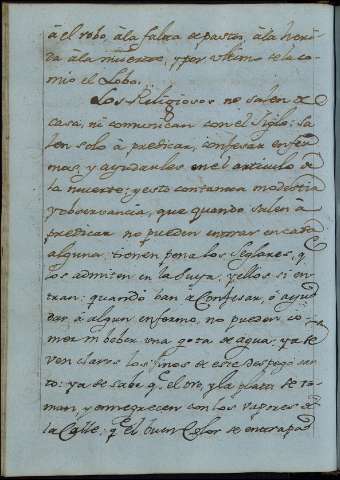 à el robo, à la falta de pastos, à la heri-
da à la muerte, y por ultimo se la co-
mio el Lobo.
8
Los Religiosos no salen de
casa, ni comunican con el Siglo: sa
len solo à predicar, confesar enfer
mos, y ayudarles en el articulo de
la muerte; y esto con tanta modestia
y observancia, que quando salen à
predicar no pueden entrar en casa
alguna: tienen pena los Seglares, q
los admiten en la suya, y ellos si en
tran: quando ban à Confesar, ò ayu
dar à algun enfermo, no pueden co-
mer ni beber una gota de agua, ya se
ven claros los fines de este despego san
to: ya se sabe q. el oro, y la plata se to-
man, y ennegrecen con los vapores de
la Calle: q. el buen Color se